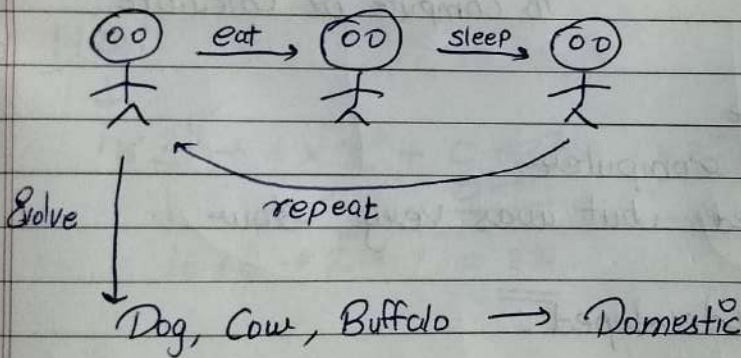 eat → sleep →
repeat
Evolve
Dog, Cow, Buffalo → Domestic